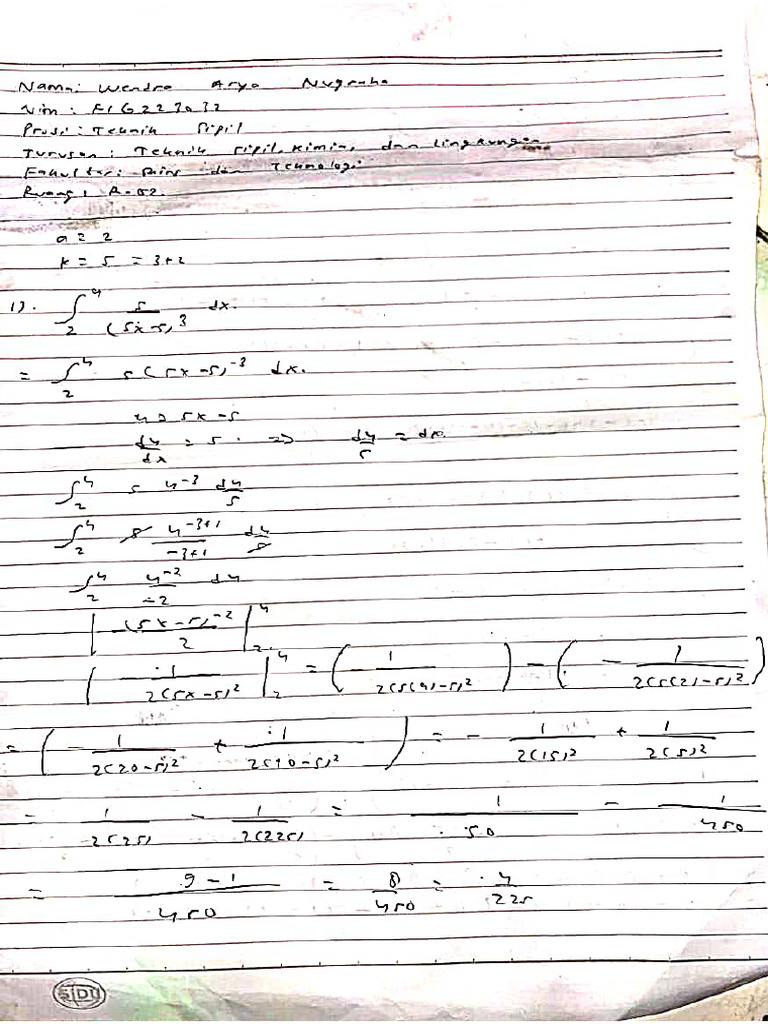 Nama: Wendra Aryo Nugraha
Nim: F1G223032
Prosi: Teknik Sipil
Jurusan: Teknik Sipil, Kimia, dan Lingkungan
Fakultas: Sains dan Teknologi
Ruang: R-02
a = 2
k = 5 = 3+2
1). ∫₂⁴ 5/(5x-5)³ dx.
= ∫₂⁴ 5(5x-5)⁻³ dx.
u = 5x-5
du/dx = 5 . => du/5 = dx
∫₂⁴ 5 u⁻³ du/5
∫₂⁴ 5 u⁻³⁺¹/-3+1 du/5
∫₂⁴ u⁻²/-2 du
| -(5x-5)⁻²/2 |₂⁴
| -1/2(5x-5)² |₂⁴ = (-1/2(5(4)-5)²) - (-1/2(5(2)-5)²)
= (-1/2(20-5)² + 1/2(10-5)²) = -1/2(15)² + 1/2(5)²
= 1/2(25) - 1/2(225) = 1/50 - 1/450
= 9-1/450 = 8/450 = 4/225
SIDU